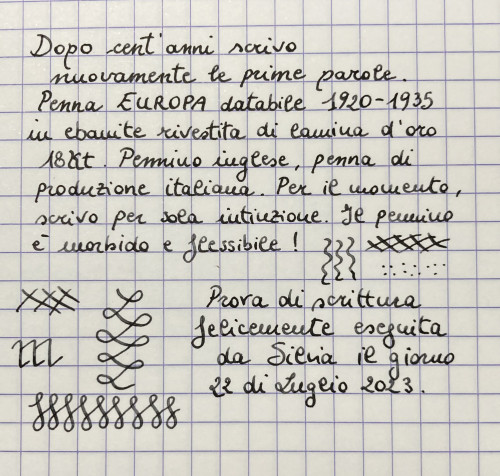 Dopo cent'anni scrivo
nuovamente le prime parole.
Penna EUROPA databile 1920-1935
in ebanite rivestita di lamina d'oro
18Kt. Pennino inglese, penna di
produzione italiana. Per il momento,
scrivo per sola intuizione. Il pennino
è morbido e flessibile!
Prova di scrittura
felicemente eseguita
da Silvia il giorno
22 di Luglio 2023.